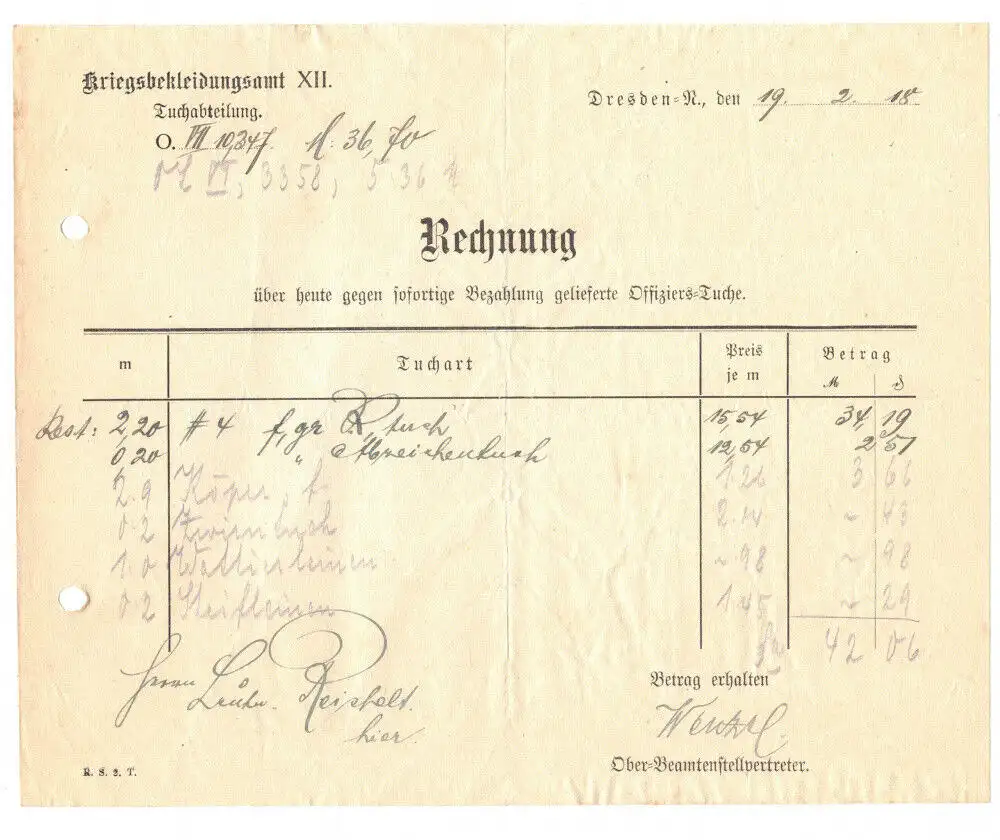 Kriegsbekleidungsamt XII.
Tuchabteilung.
Dresden=N., den 19. 2. 18
O. VIII 10,347. M. 36,70
VI, 3358, 5.36
Rechnung
über heute gegen sofortige Bezahlung gelieferte Offiziers=Tuche.
m Tuchart Preis je m Betrag
M ₰
Rest: 2,20 #4 f. gr. R. tuch 15,54 34,19
0,20 " Abzeichentuch 12,54 2 51
2.9 Köper, f. 1.26 3 66
0.2 Zwirntuch 2.14 ~ 43
1.0 Wattierleinen ~ 98 ~ 98
0.2 Steifleinen 1.45 ~ 29
42 06
Herrn Leutn. Reichelt.
hier.
Betrag erhalten
Wenzel.
Ober=Beamtenstellvertreter.
R. S. 2. T.